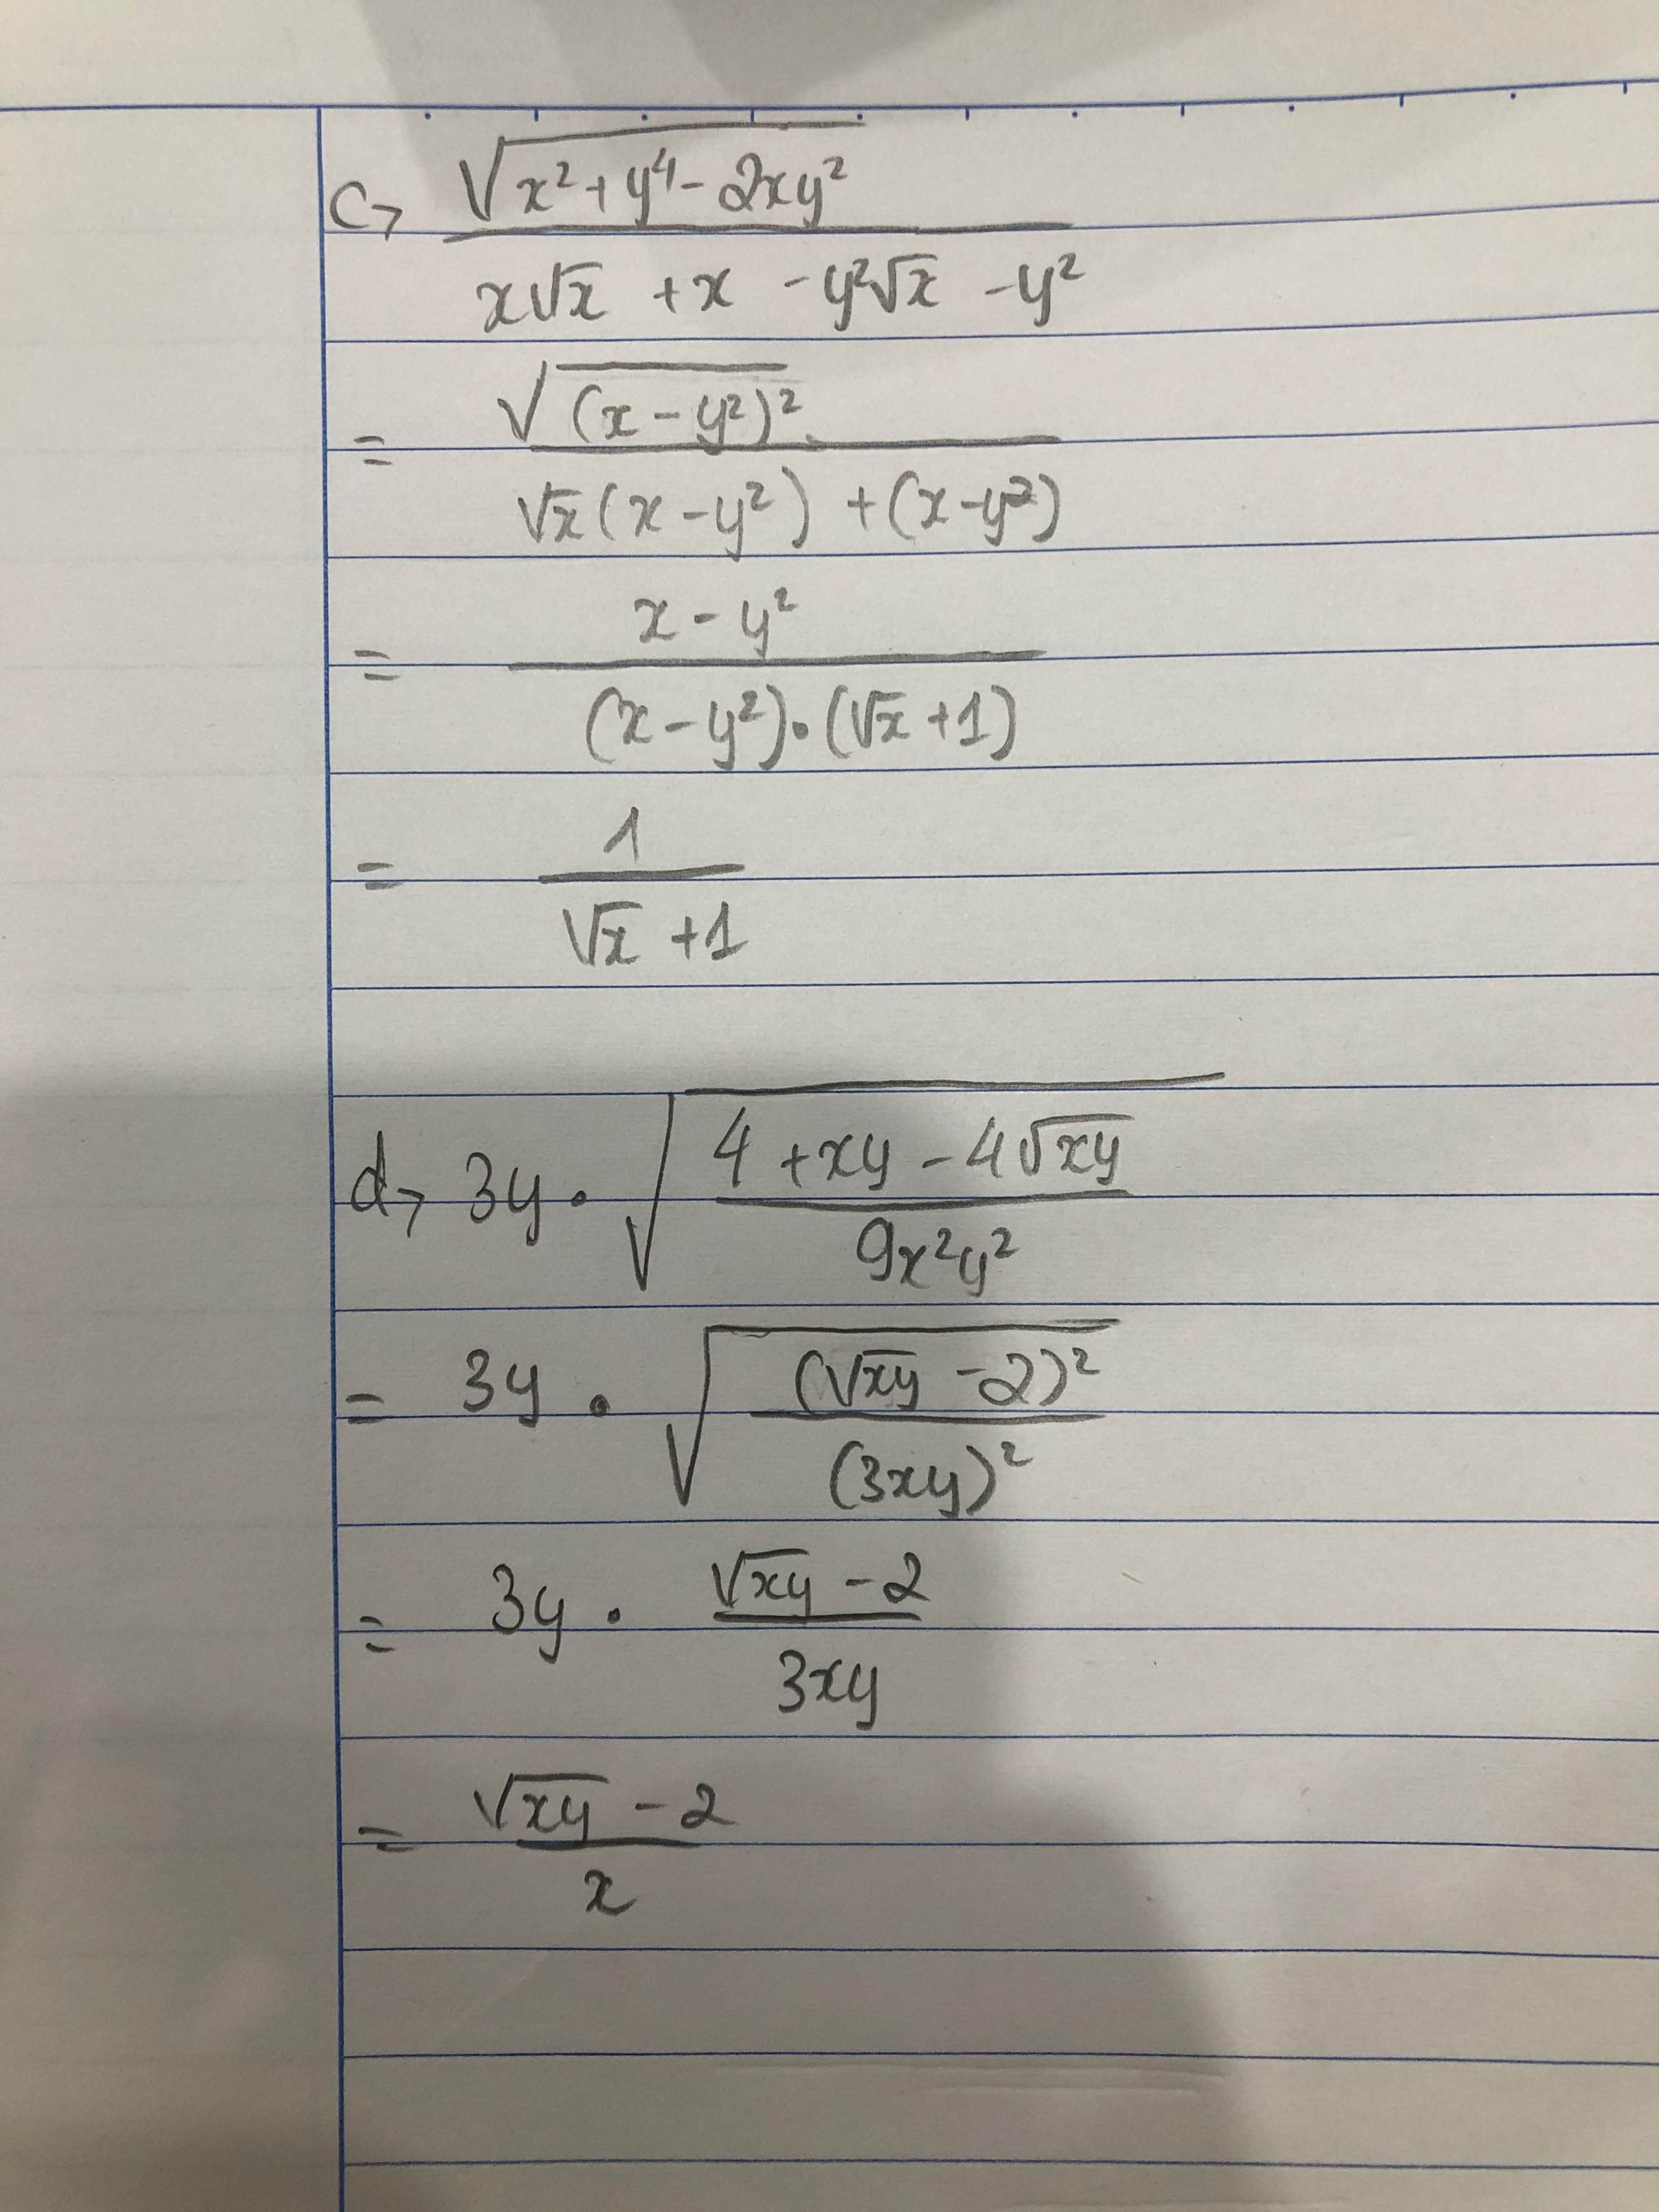 c, √(x²+y⁴-2xy²) / (x√x + x - y²√x - y²)
= √((x-y²)²) / (√x(x-y²) + (x-y²))
= (x-y²) / ((x-y²)·(√x+1))
= 1 / (√x+1)
d, 3y · √((4+xy-4√xy) / (9x²y²))
= 3y · √((√xy-2)² / (3xy)²)
= 3y · (√xy-2) / (3xy)
= (√xy-2) / x